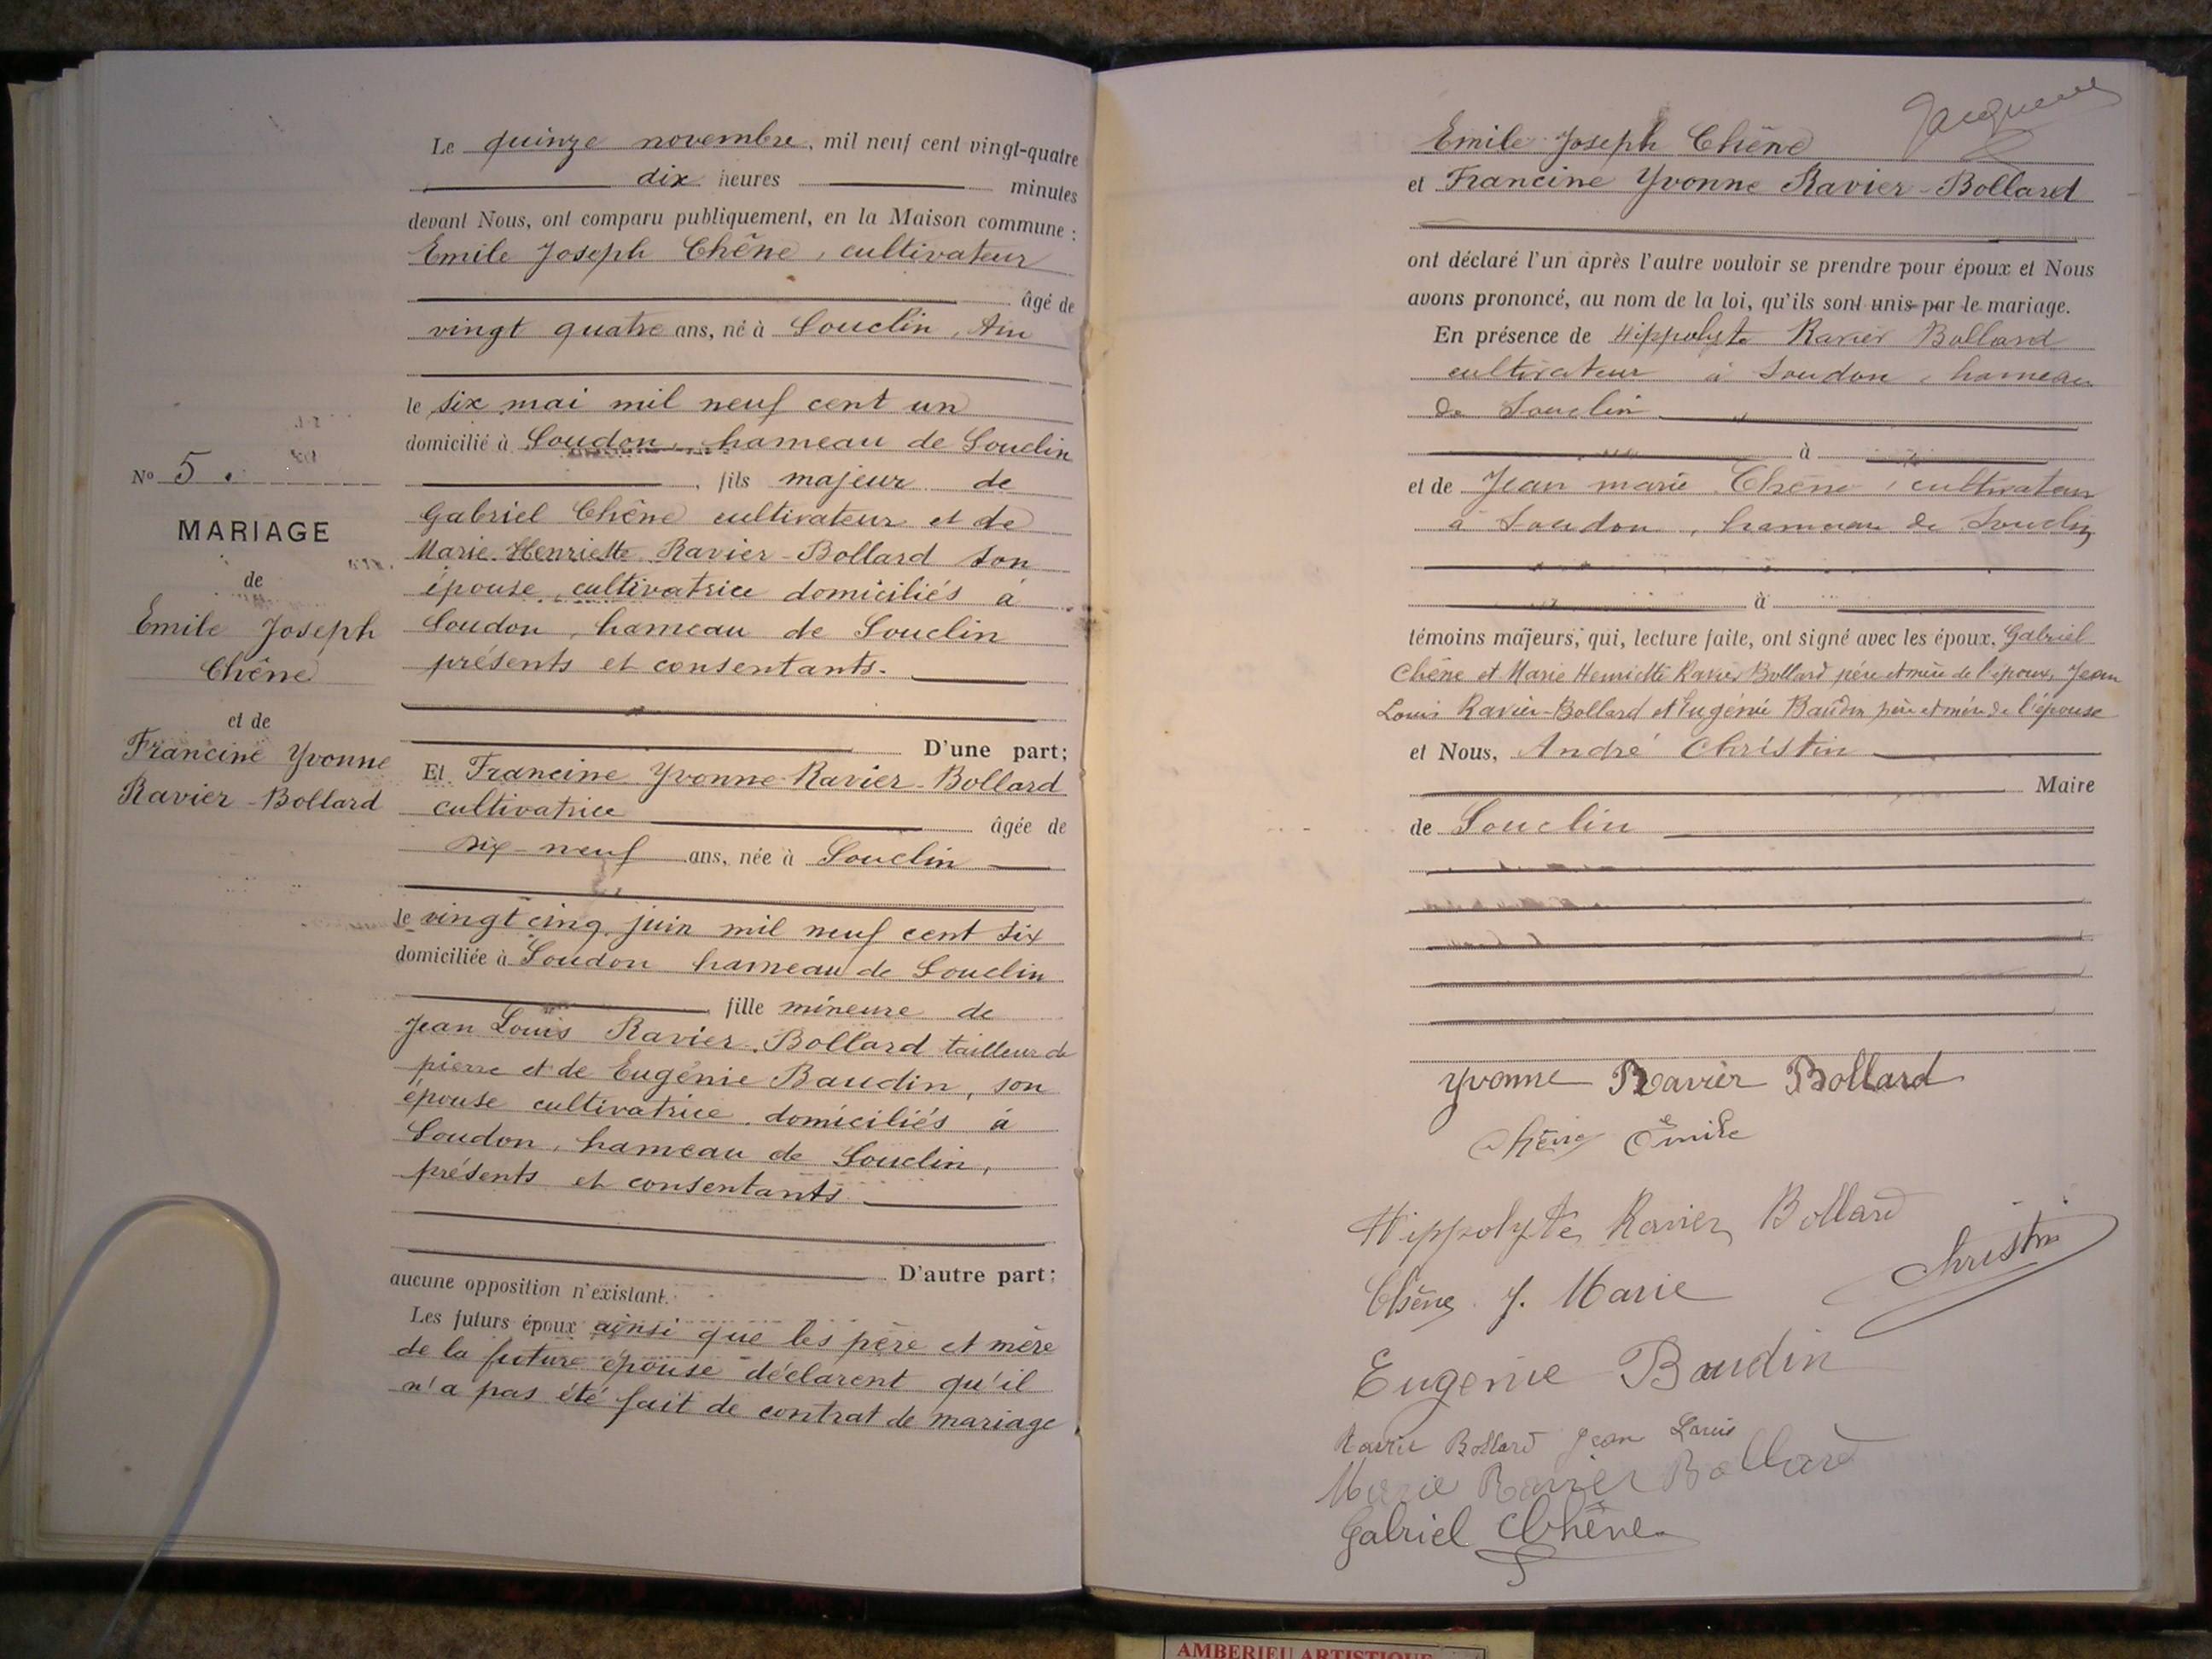 Le quinze novembre, mil neuf cent vingt-quatre
dix heures minutes
devant Nous, ont comparu publiquement, en la Maison commune :
Emile Joseph Chêne, cultivateur
âgé de
vingt quatre ans, né à Souclin, Ain
le six mai mil neuf cent un
domicilié à Soudon, hameau de Souclin
, fils majeur de
Gabriel Chêne cultivateur et de
Marie Henriette Ravier-Bollard son
épouse, cultivatrice domiciliés à
Soudon, hameau de Souclin
présents et consentants.
D'une part;
Et Francine Yvonne Ravier-Bollard
cultivatrice âgée de
dix-neuf ans, née à Souclin
le vingt cinq juin mil neuf cent six
domiciliée à Soudon hameau de Souclin
fille mineure de
Jean Louis Ravier-Bollard tailleur de
pierre et de Eugénie Baudin, son
épouse cultivatrice domiciliés à
Soudon, hameau de Souclin,
présents et consentants
D'autre part;
aucune opposition n'existant.
Les futurs époux ainsi que les père et mère
de la future épouse déclarent qu'il
n'a pas été fait de contrat de mariage
No 5.
MARIAGE
de
Emile Joseph
Chêne
et de
Francine Yvonne
Ravier-Bollard
Emile Joseph Chêne
et Francine Yvonne Ravier-Bollard
ont déclaré l'un après l'autre vouloir se prendre pour époux et Nous
avons prononcé, au nom de la loi, qu'ils sont unis par le mariage.
En présence de Hippolyte Ravier Bollard
cultivateur à Soudon, hameau
de Souclin
à
et de Jean marie Chêne, cultivateur
à Soudon, hameau de Souclin
à
témoins majeurs, qui, lecture faite, ont signé avec les époux, Gabriel
Chêne et Marie Henriette Ravier Bollard père et mère de l'époux, Jean
Louis Ravier-Bollard et Eugénie Baudin père et mère de l'épouse
et Nous, André Christin
Maire
de Souclin
Yvonne Ravier Bollard
Chêne Émile
Hippolyte Ravier Bollard
Christin
Chêne J. Marie
Eugenie Baudin
Ravier Bollard Jean Louis
Marie Ravier Bollard
Gabriel Chêne
AMBERIEU ARTISTIQUE